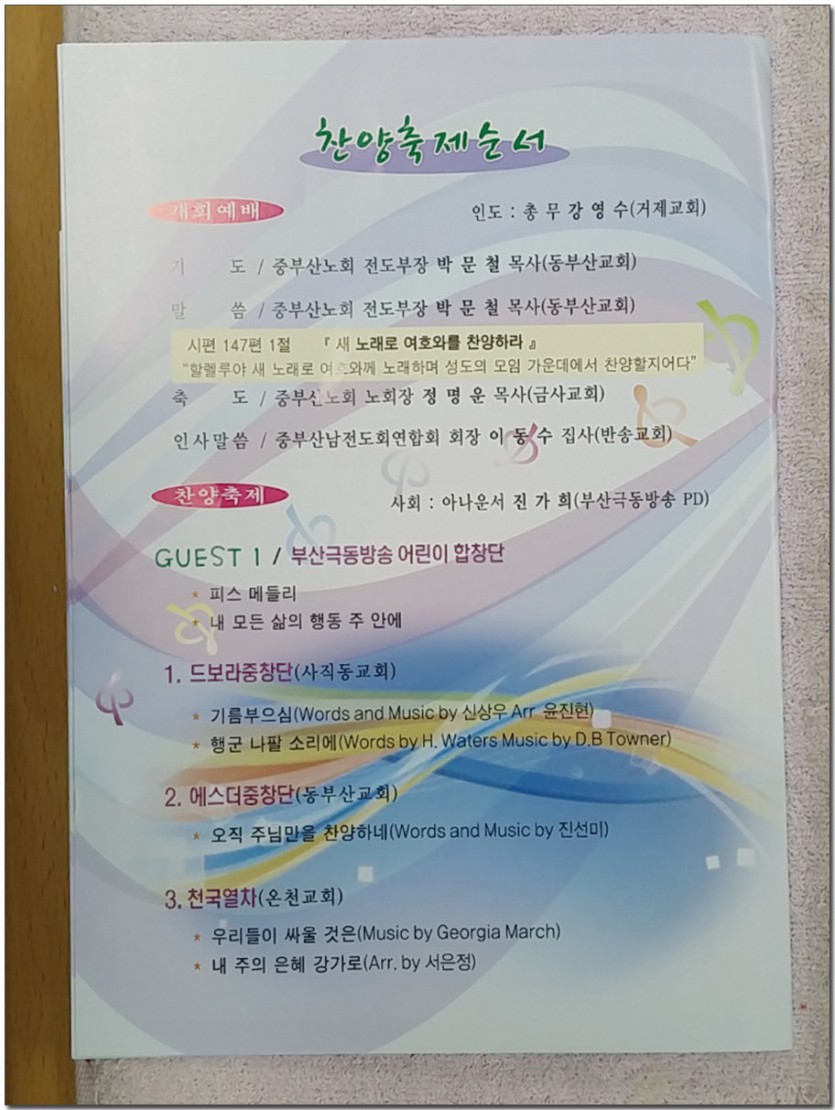 찬양축제순서
개회예배
인도 : 총 무 강 영 수(거제교회)
기 도 / 중부산노회 전도부장 박 문 철 목사(동부산교회)
말 씀 / 중부산노회 전도부장 박 문 철 목사(동부산교회)
시편 147편 1절 『 새 노래로 여호와를 찬양하라 』
“할렐루야 새 노래로 여호와께 노래하며 성도의 모임 가운데에서 찬양할지어다”
축 도 / 중부산노회 노회장 정 명 운 목사(금사교회)
인사말씀 / 중부산남전도회연합회 회장 이 동 수 집사(반송교회)
찬양축제
사회 : 아나운서 진 가 희(부산극동방송 PD)
GUEST 1 / 부산극동방송 어린이 합창단
* 피스 메들리
* 내 모든 삶의 행동 주 안에
1. 드보라중창단(사직동교회)
* 기름부으심(Words and Music by 신상우 Arr 윤진현)
* 행군 나팔 소리에(Words by H. Waters Music by D.B Towner)
2. 에스더중창단(동부산교회)
* 오직 주님만을 찬양하네(Words and Music by 진선미)
3. 천국열차(온천교회)
* 우리들이 싸울 것은(Music by Georgia March)
* 내 주의 은혜 강가로(Arr. by 서은정)